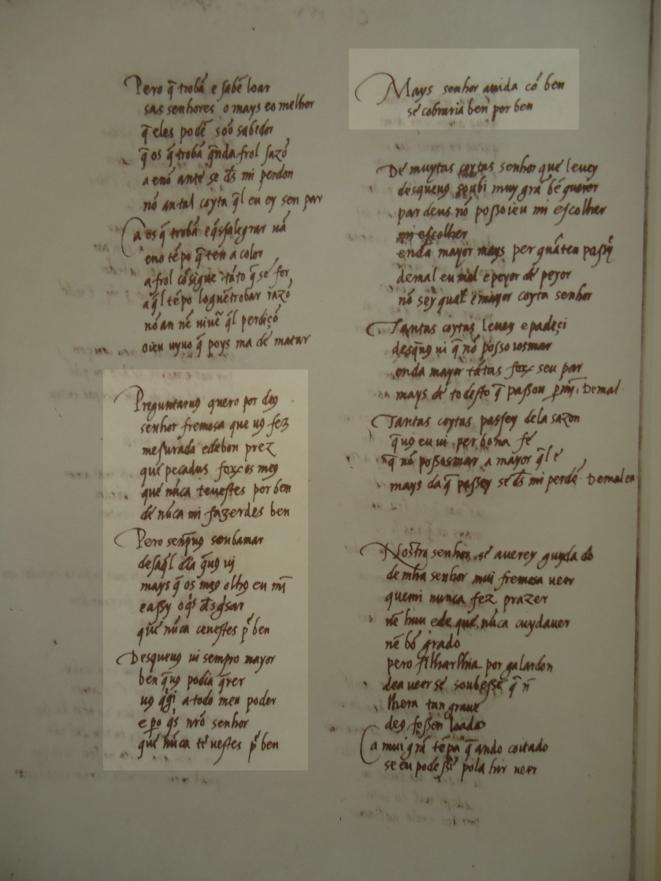 Pero q̄ trobā e sabē loar
sas senhores o mays eo melhor
q̄ eles podē soō sabedor
q̄ os q̄ trobā q̄nda frol sazō
a enō ante se d̄s mi perdon
nō an tal coyta q̄l eu ey sen par
Ca os q̄ trobā eq̄ssalegrar uā
eno tēpo q̄ ten a color
a frol cōsigue tāto q̄ se for
aq̄l tēpo logue trobar razō
nō an nē uiuē q̄l perdiçō
oieu uyuo q̄ poys ma de matar
Preguntaruꝯ quero por deꝯ
senhor fremosa que uꝯ fez
mesurada edebon prez
que pecadus forō os meꝯ
que nūca teuestes por ben
de nūca mi fazerdes ben
Pero senp̄uꝯ soubamar
desaq̄l dia q̄uꝯ ui
mays q̄ os meꝯ olhꝯ eu mī
eassy o q̄s d̄s guisar
que nūca teuestes p̄ ben
Desqueuꝯ ui sempro mayor
ben q̄uꝯ podia q̄rer
uꝯ q̄gi a todo meu poder
e po q̄s nr̄o senhor
que nūca teuestes p̄ ben
Mays senhor auida cō ben
se cobraria ben por ben
De muytas coytas senhor que leuey
desqueuꝯ soubi muy grā bē querer
par deus nō posso ieu mi escolher
mi escolher
enda mayor mays per quāten passey
demal eu mal e peyor de peyor
nō sey qual e mayor coyta senhor
Tantas coytas leuey e padeci
desq̄uꝯ ui q̄ nō posso osmar
enda mayor tātas forō seu par
mays de todesto q̄ passou p̄ mī Demal
Tantas coytas passey dela sazon
q̄uꝯ eu ui per bona fe
q̄ nō possosmar a mayor q̄l e
mays da q̄ passey se d̄s mi perdō Demal eu
Nostro senhor se auerey guysado
de mha senhor mui fremosa ueer
quemi nunca fez prazer
nē huu ede que nūca cuydauer
nē bō grado
pero filharlhia por galardon
dea ueer se soubesse q̄ n̄
lhera tan graue
deꝯ fossen loado
Ca mui grā tēpa q̄ ando coitado
se eu podesse pola hir ueer